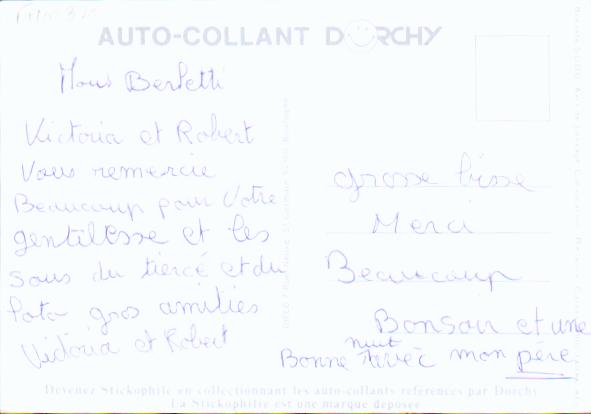 AUTO-COLLANT DORCHY
Mous Berletti
Victoria et Robert
Vous remercie
Beaucoup pour Votre
gentillesse et les
sous du tiercé et du
loto gros amitiés
Victoria et Robert
grosse bisse
Merci
Beaucoup
Bonsoir et une
Bonne nuit avec mon père
Devenez Stickophile en collectionnant les auto-collants références par Dorchy
La Stickophilie est une marque déposée